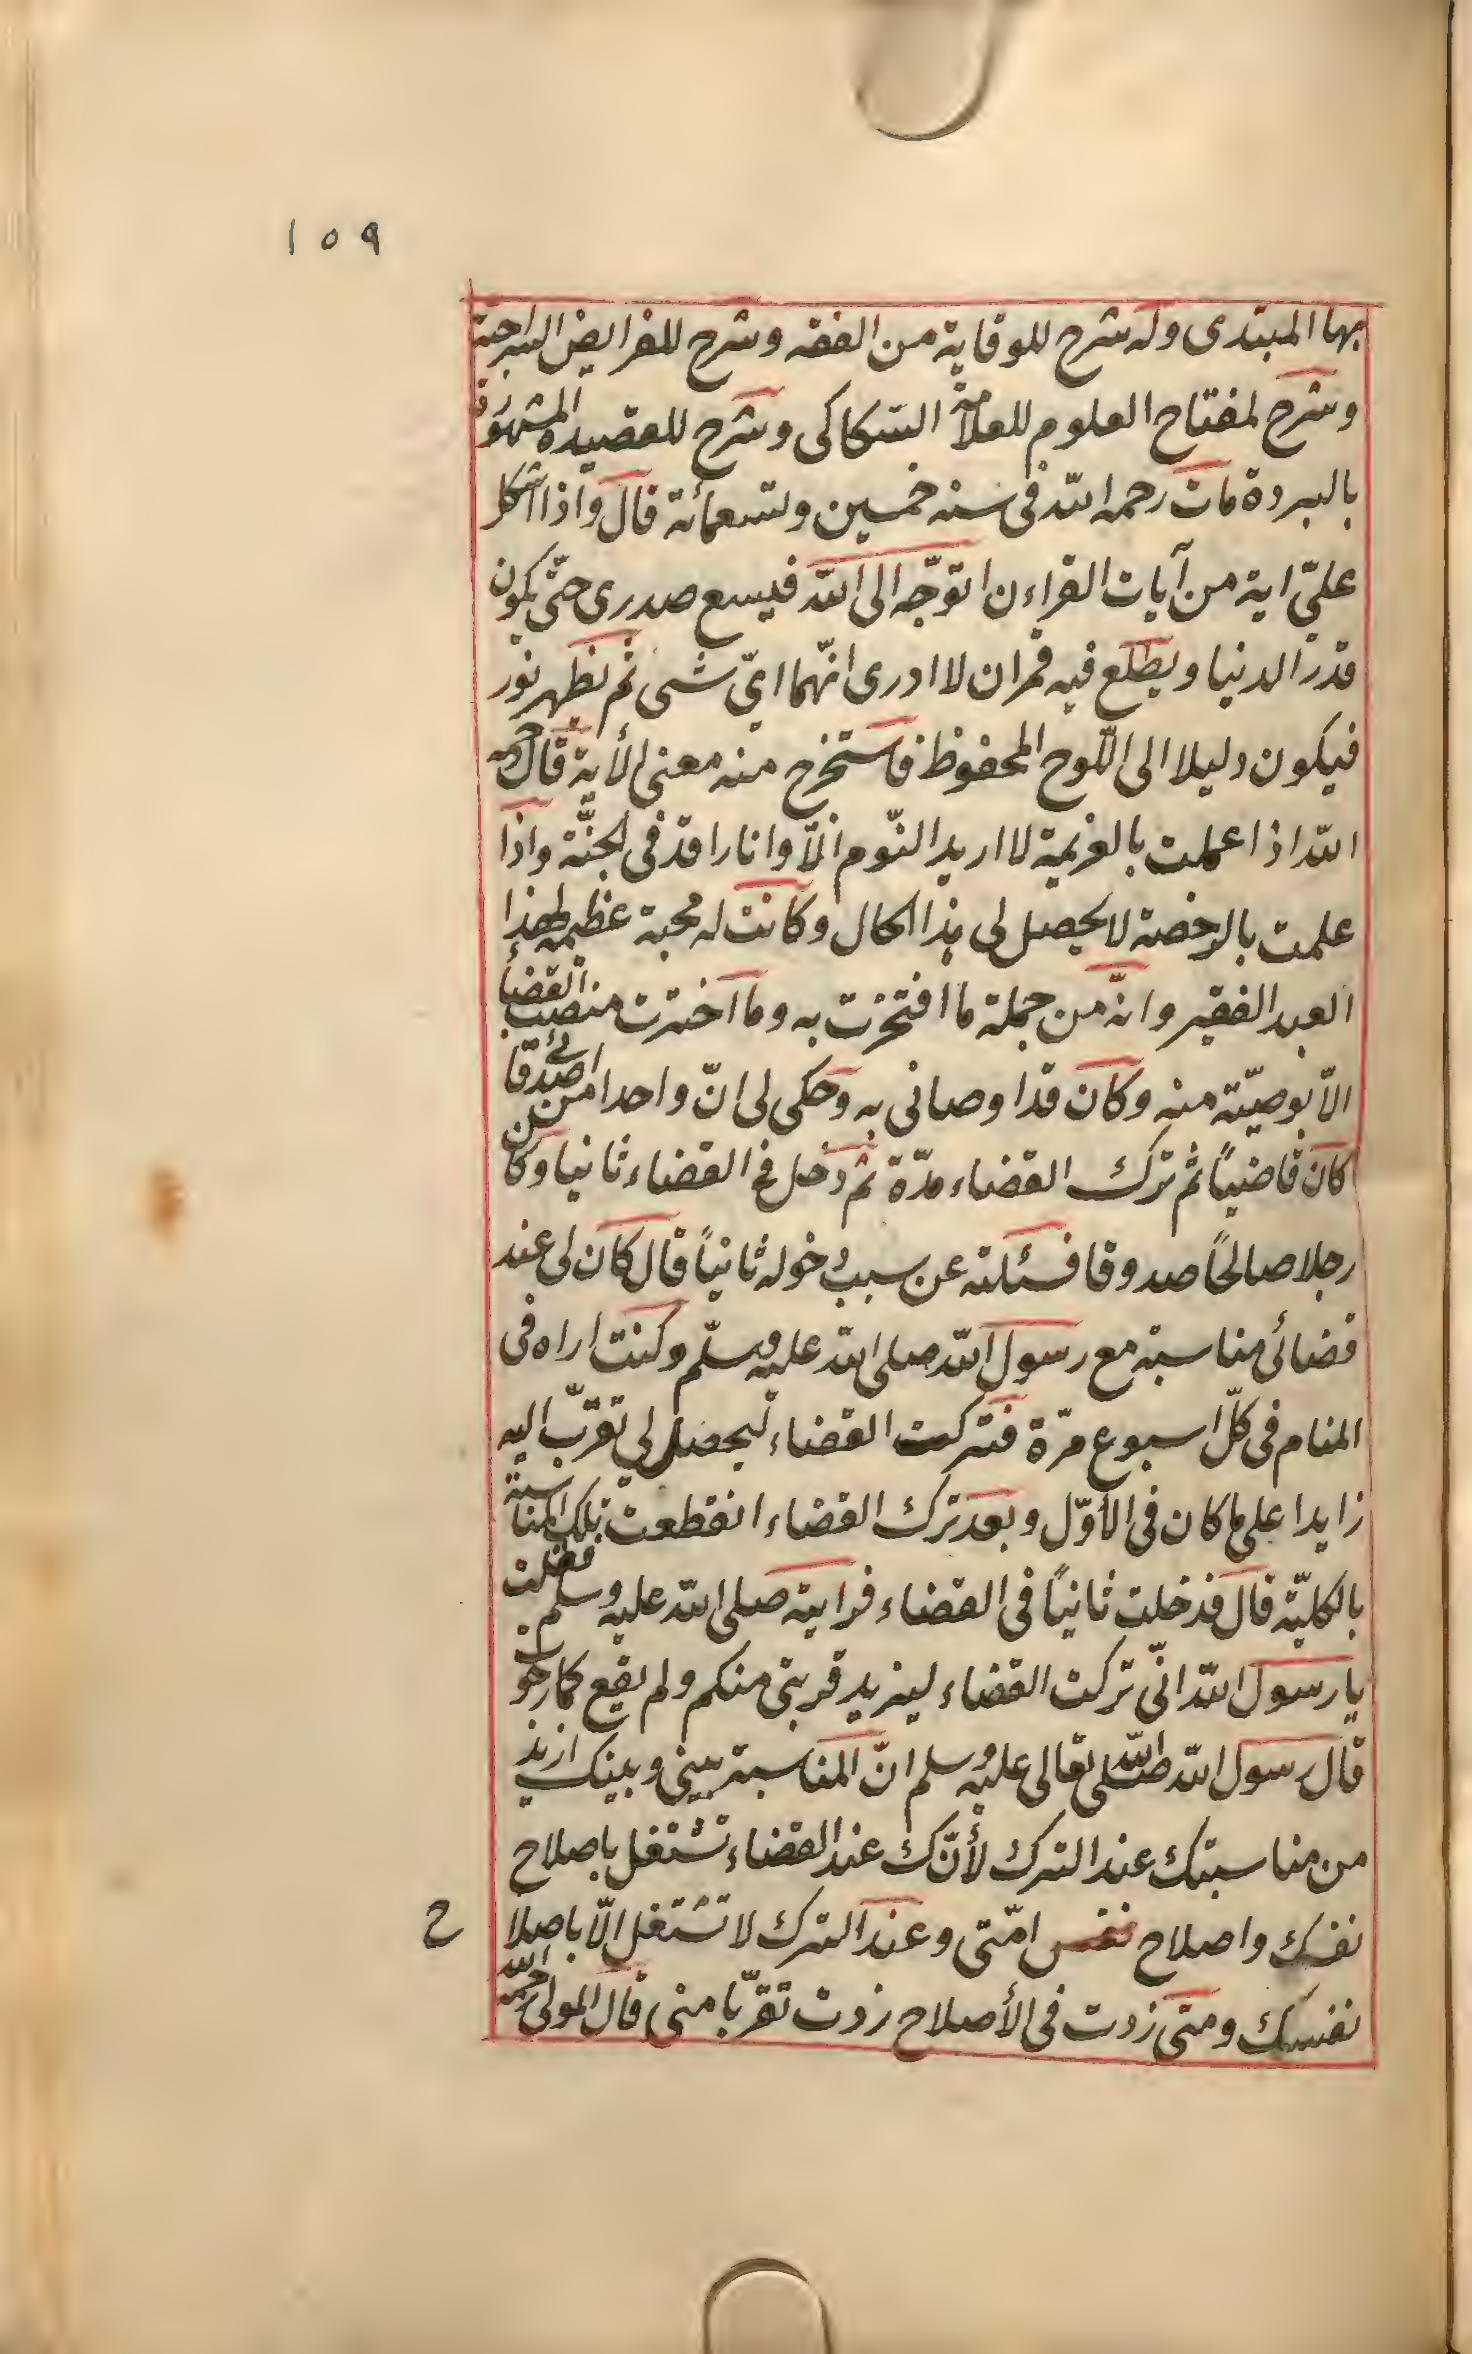 ١٥٩
بها المبتدى وله شرح للوقاية من الفقه وشرح للفرايض السراجية
وشرح لمفتاح العلوم للعلامة السكاكى وشرح للقصيدة المشهورة
بالبردة مات رحمه الله فى سنه خمسين وتسعمائة قال واذا اشكل
علىّ اية من آيات القراءن اتوجّه الى الله فيسع صدرى حتّى يكون
قدر الدنيا ويطلع فيه قمران لا ادرى انّهما اىّ شى ثم يظهر نور
فيكون دليلا الى اللّوح المحفوظ فاستخرج منه معنى الأية قال رحمه
الله اذا عملت بالعزيمة لا اريد النّوم الاّ وانا راقد فى الجنّة واذا
علمت بالرخصة لا يحصل لى هذا الحال وكانت له محبة عظيمة لهذا
العبد الفقير وانّه من جملة ما افتخرت به وما اخترت منصب القضا
الاّ بوصيّته منه وكان قد اوصانى به وحكى لى انّ واحدا من اصدقائى
كان قاضياً ثم ترك القضاء مدّة ثم دخل فى القضاء ثانيا وكان
رجلا صالحًا صدوقا فسئلته عن سبب دخوله ثانياً قال كان لى عند
قضائى مناسبة مع رسول الله صلى الله عليه وسلّم وكنت اراه فى
المنام فى كلّ اسبوع مرّة فتركت القضاء ليحصل لى تقرّب اليه
زايدا على ما كان فى الأوّل وبعد ترك القضاء انقطعت تلك المناسبة
بالكليّة قال فدخلت ثانياً فى القضاء فرايته صلى الله عليه وسلم فقلت
يا رسول الله انّى تركت القضاء ليزيد قربتى منكم ولم يقع كما رجوت
قال رسول الله صلى الله تعالى عليه وسلم انّ المناسبة بينى وبينك ازيد
من مناسبتك عند الترك لأنّك عند القضاء تشتغل باصلاح
نفسك واصلاح نفس امّتى وعند الترك لا تشتغل الاّ باصلا
ح
نفسك ومتى زدت فى الأصلاح زدت تقرّبا منى قال المولى رحمه الله